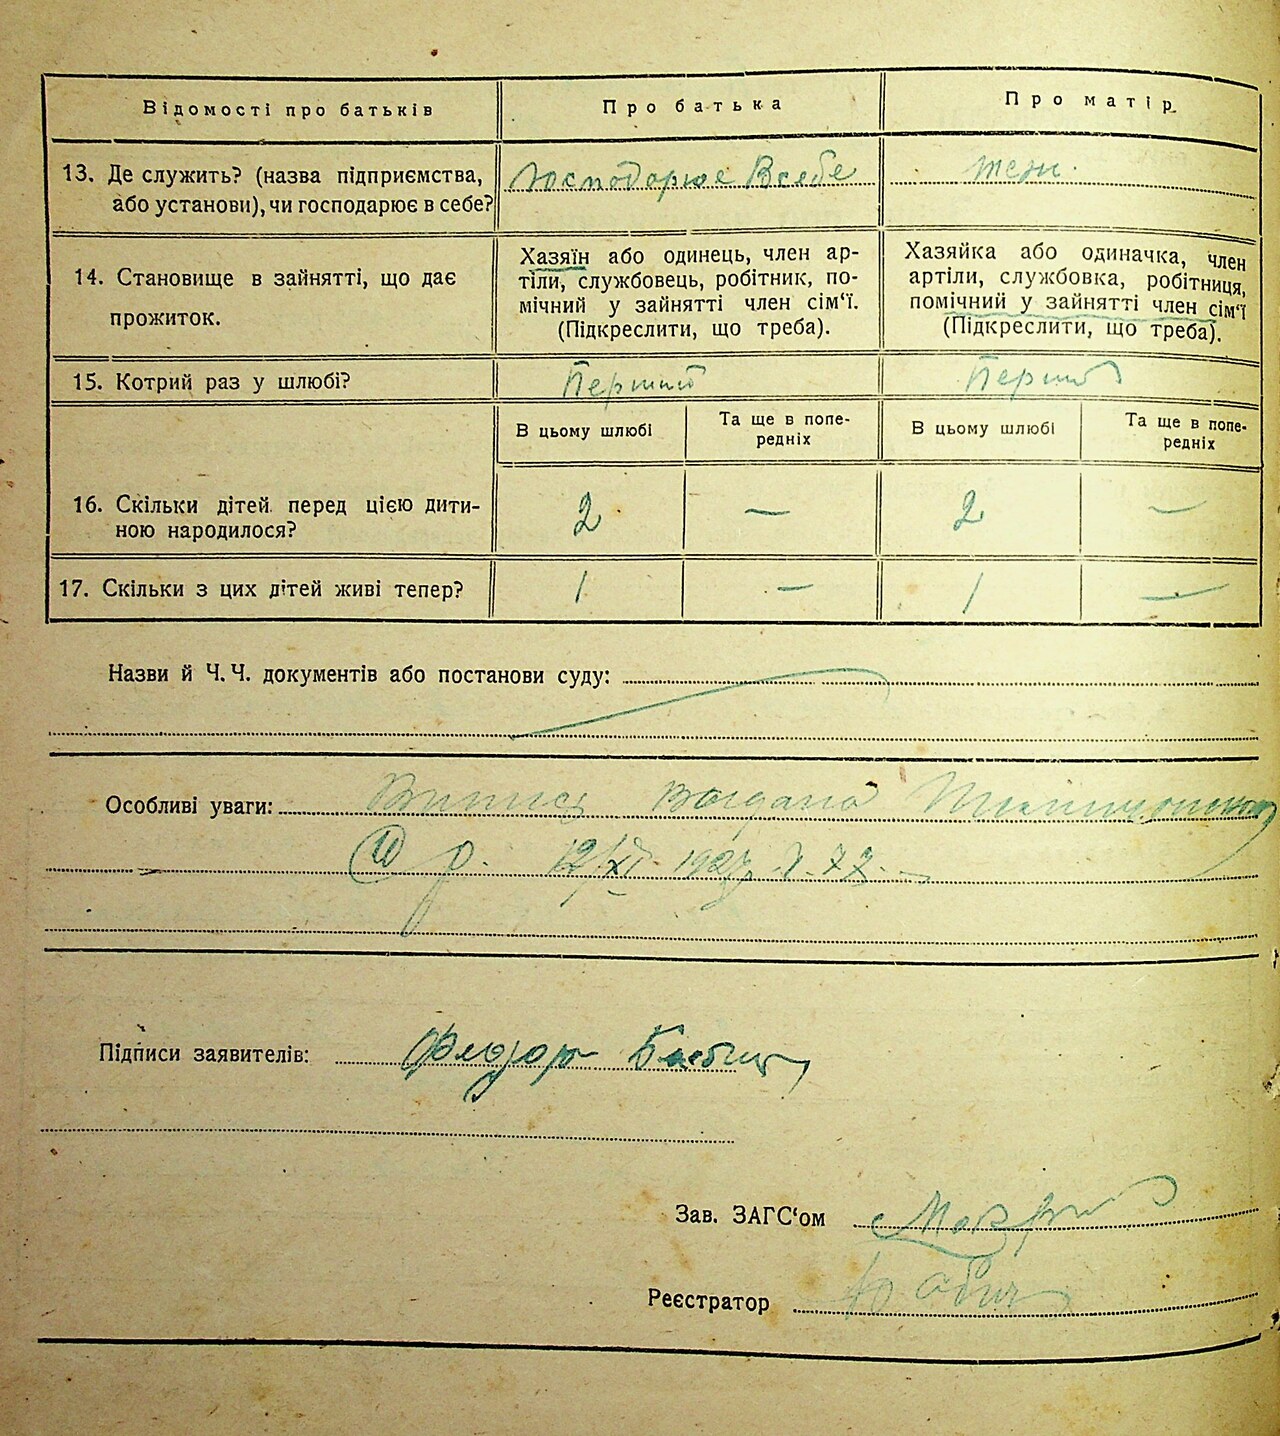 Відомості про батьків Про батька Про матір
13. Де служить? (назва підприємства, або установи), чи господарює в себе? Господарює Вселбе теж.
14. Становище в зайнятті, що дає прожиток.
Хазяїн або одинець, член ар-
тіли, службовець, робітник, по-
мічний у зайнятті член сім‘ї.
(Підкреслити, що треба).
Хазяйка або одиначка, член
артіли, службовка, робітниця,
помічний у зайнятті член сім‘ї
(Підкреслити, що треба).
15. Котрий раз у шлюбі? Перший Перший
В цьому шлюбі Та ще в попе-
редніх В цьому шлюбі Та ще в попе-
редніх
16. Скільки дітей перед цією дити-
ною народилося? 2 — 2 —
17. Скільки з цих дітей живі тепер? 1 — 1 —
Назви й Ч. Ч. документів або постанови суду:
Особливі уваги: Випис Видано
р. 12/XI 1927
Підписи заявителів: Федор
Зав. ЗАГС‘ом
Реєстратор